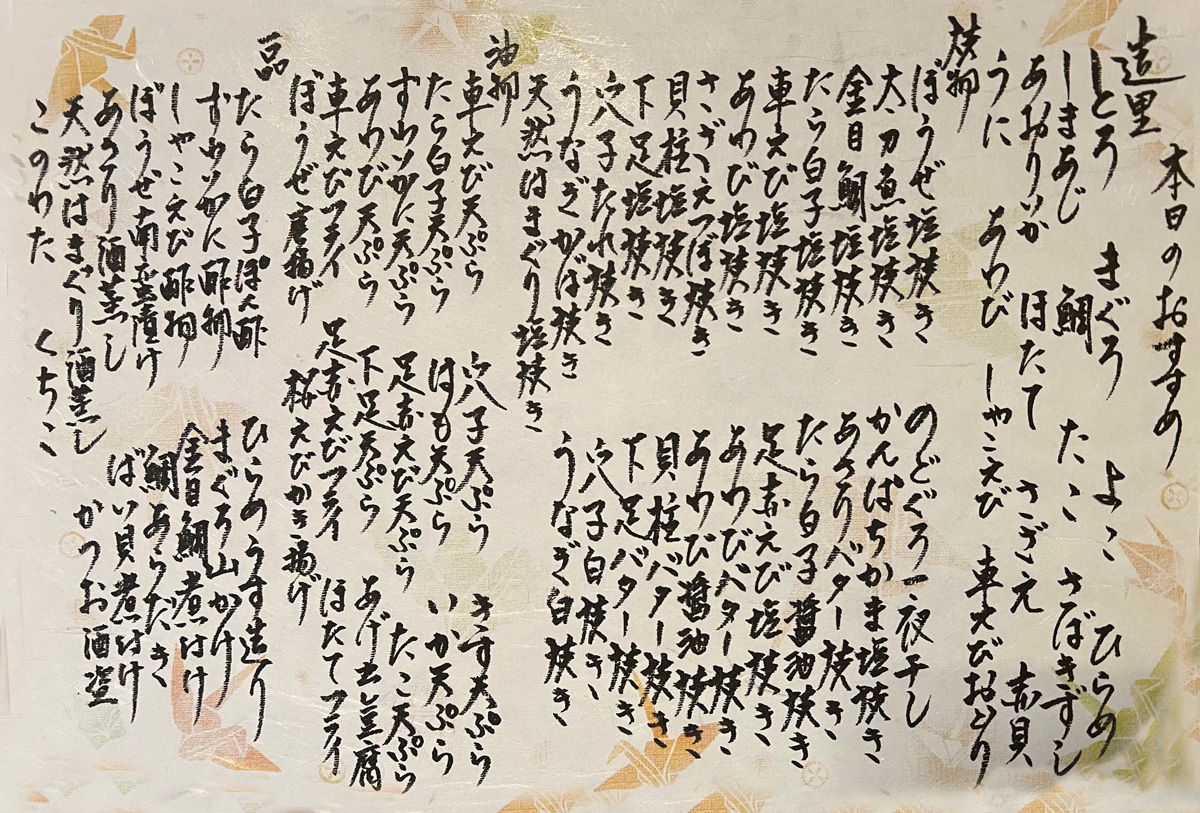 本日のおすすめ
造里
しとろ まぐろ よこ ひらめ
しまあじ 鯛 たこ さばきずし
あおりいか ほたて さざえ 赤貝
うに あわび しゃこえび 車えびおどり
焼物
ぼうぜ塩焼き のどぐろ一夜干し
太刀魚塩焼き かんぱちかま塩焼き
金目鯛塩焼き あさりバター焼き
たら白子塩焼き たら白子醤油焼き
車えび塩焼き 足赤えび塩焼き
あわび塩焼き あわびバター焼き
さざえつぼ焼き あわび醤油焼き
貝柱塩焼き 貝柱バター焼き
下足塩焼き 下足バター焼き
穴子たれ焼き 穴子白焼き
うなぎかば焼き うなぎ白焼き
天然はまぐり塩焼き
油物
車えび天ぷら 穴子天ぷら きす天ぷら
たら白子天ぷら はも天ぷら いか天ぷら
ずわいかに天ぷら 足赤えび天ぷら たこ天ぷら
あわび天ぷら 下足天ぷら あげ出し豆腐
車えびフライ 足赤えびフライ ほたてフライ
ぼうぜ唐揚げ 桜えびかき揚げ
一品
たら白子ぽん酢 ひらめうす造り
ずわいかに酢物 まぐろ山かけ
しゃこえび酢物 金目鯛煮付け
ぼうぜ南蛮漬け 鯛あらたき
あさり酒蒸し ばい貝煮付け
天然はまぐり酒蒸し かつお酒盗
このわた くちこ